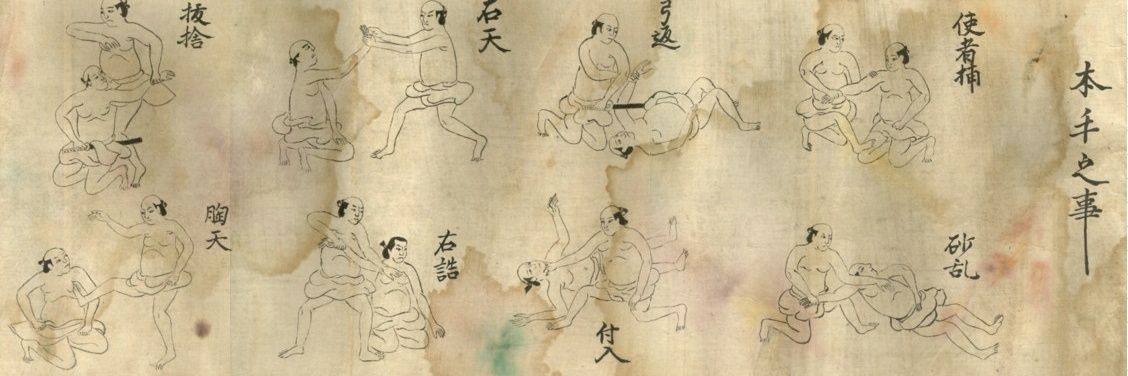 本手之事
使者捕
砂乱
弓返
付入
石天
右詰
抜捨
胸天